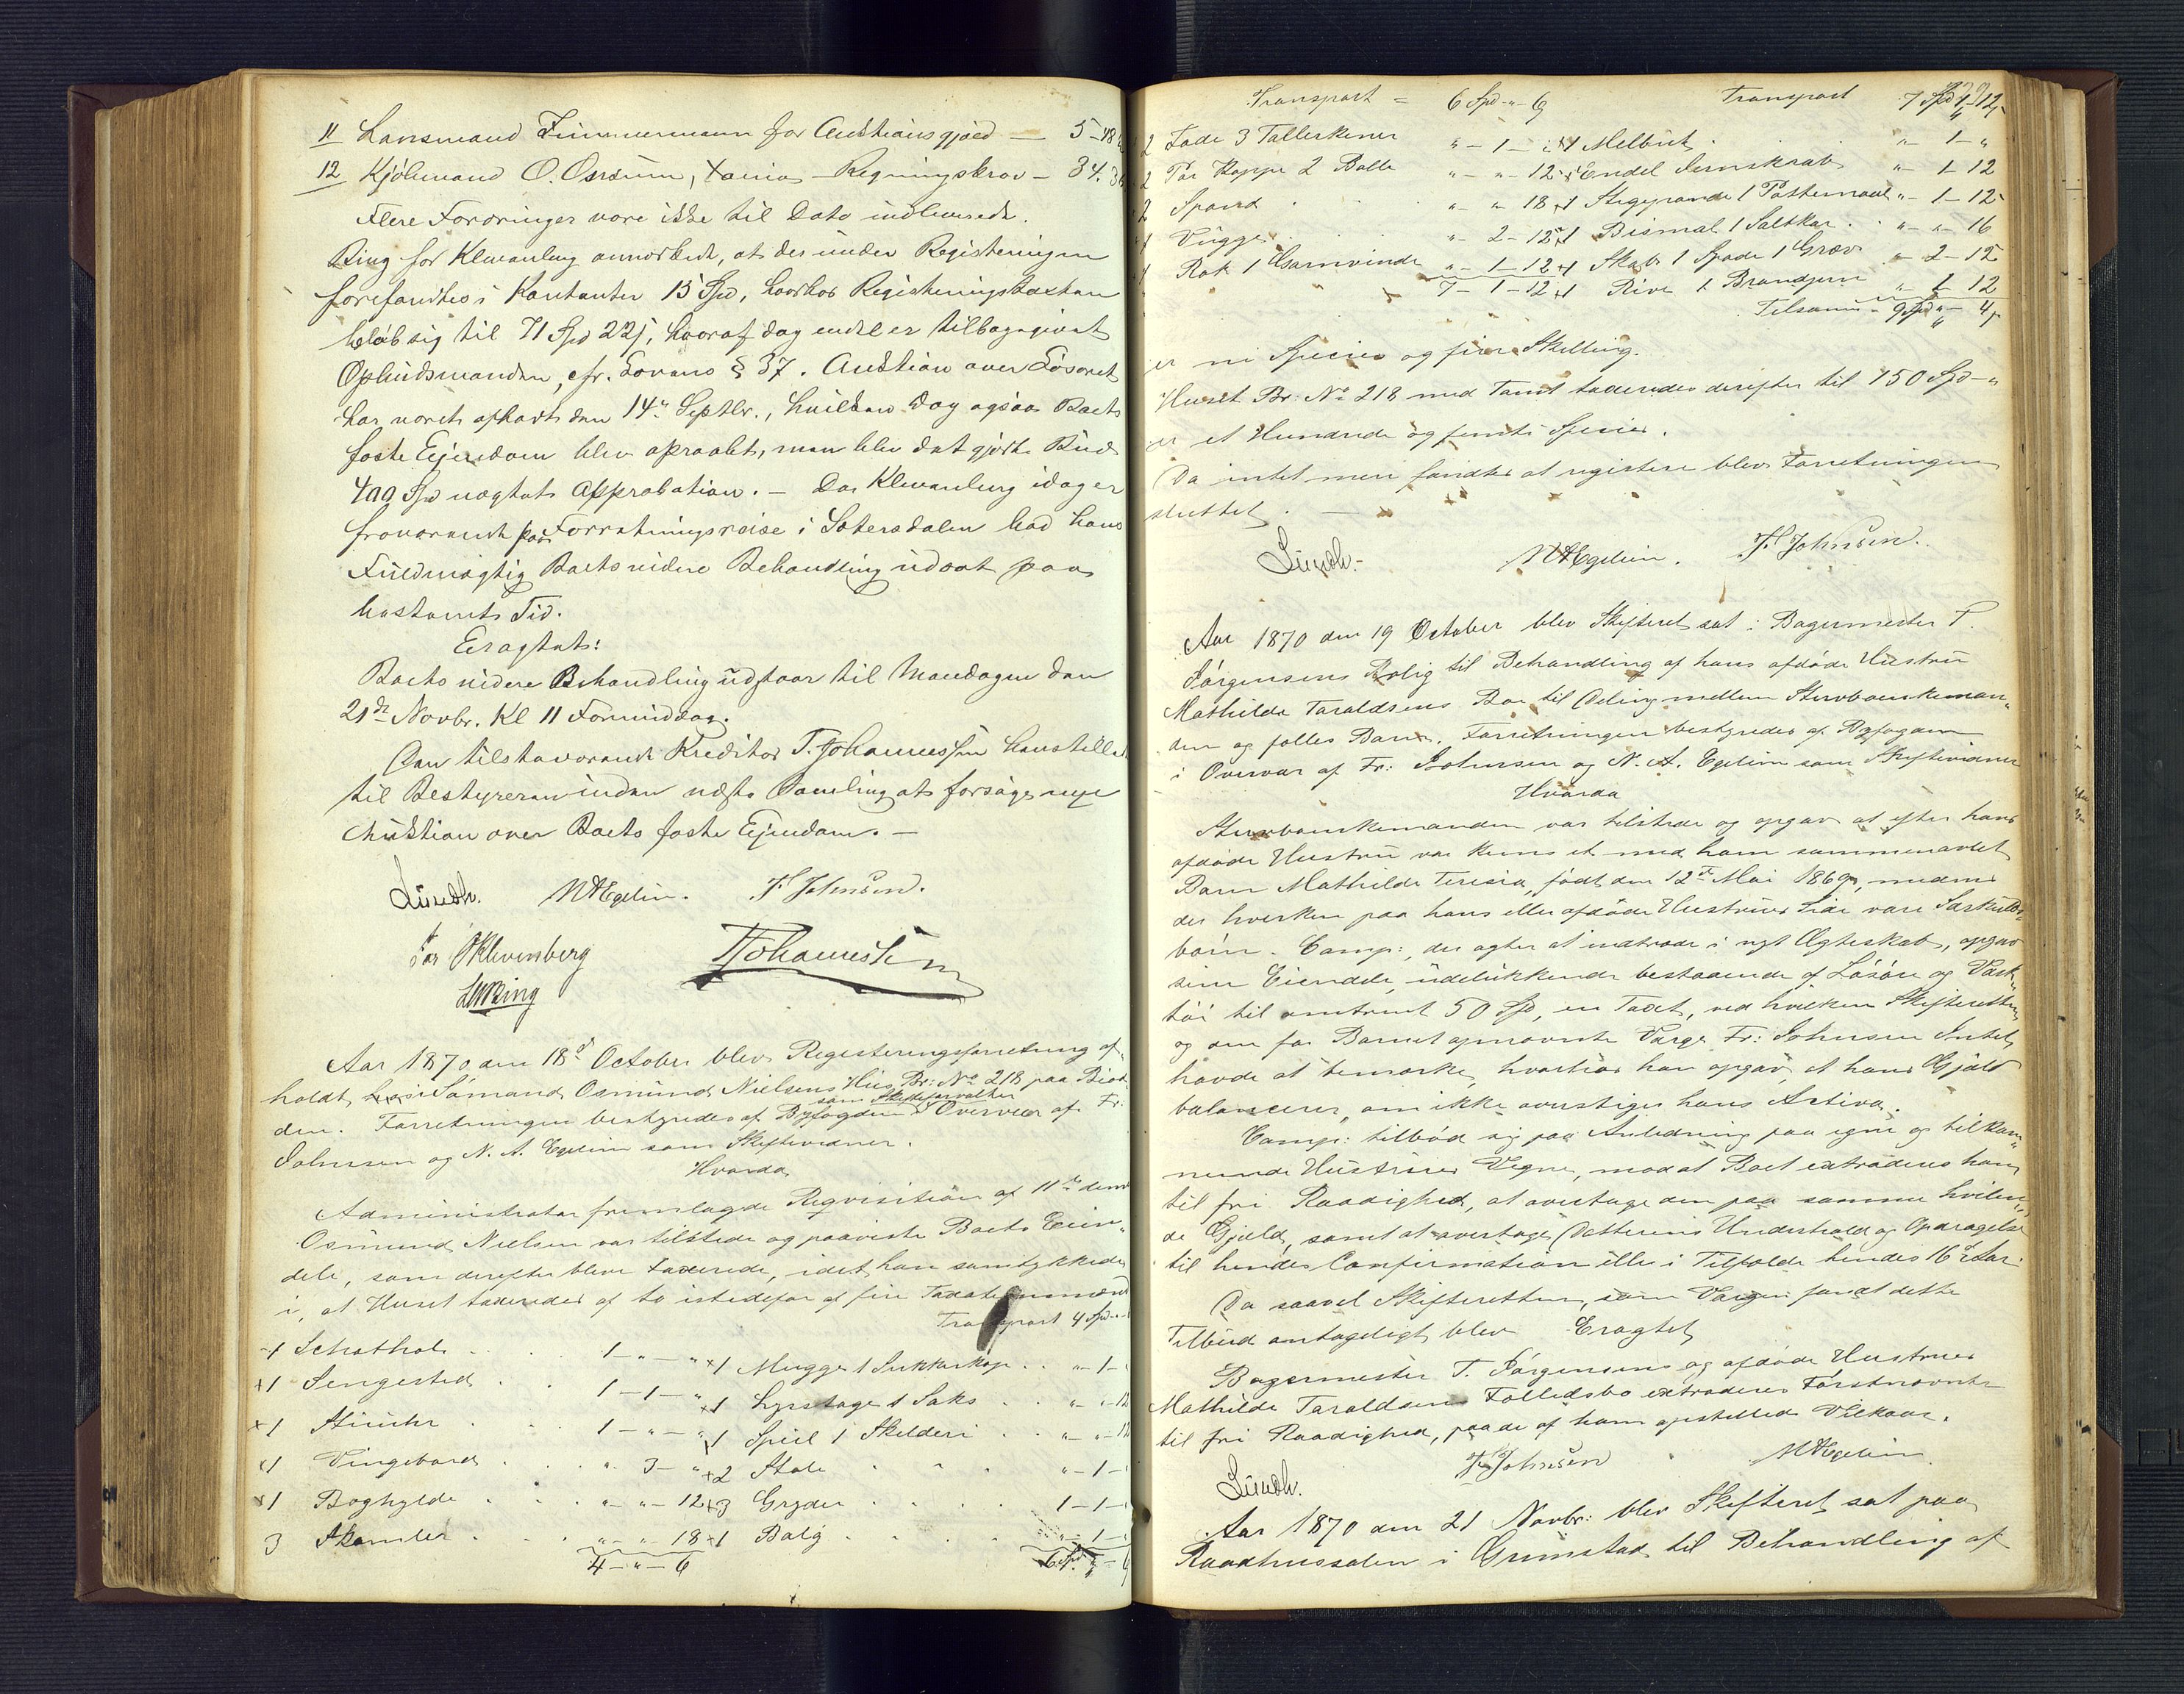 11 Lansmand Timmermann for Auktionsgjæld — 5-48
12 Kjöbmand O. Osmum, Xania — Regningskrav — 34.
Flere Fordringer vare ikke til Dato indleverede.
Ring for Klevenberg anmærkede, at der under Registeringen
forefandtes i Kontanter 15 Spd, hvorhos Registeringstaxten
beløb sig til 71 Spd 22 s, hvoraf dog endel er tilbagegivet
Opbudsmanden, cfr. Lovens § 37. Auktion over Løsøret
har været afholdt den 14de Septbr., hvilken Dag ogsaa Boets
faste Ejendom blev opraabt, men blev det gjorte Bud
400 Spd nægtet Approbation. — Da Klevenberg idag er
fraværende paa Forretningsreise i Sætersdalen bad hans
Fuldmægtig Boets videre Behandling udsat paa
bestemt Tid.
Eragtet:
Boets videre Behandling udstaar til Mandagen den
21de Novbr. Kl 11 Formiddag.
Den tilstedeværende Kreditor T. Johannessen henstillede
til Bestyreren inden næste Samling at forsøge nye
Auktion over Boets faste Ejendom. —
Lundh. N A Egelien. F Johnsen.
For O Klevenberg TJohannessen
L W Ring
Aar 1870 den 18de October blev Registeringsforretning af-
holdt hos Sømand Osmund Nielsens Hus, Br: No 218 paa Biod-
som Skifteforvalter
den. Forretningen bestyredes af Byfogden i Overvær af Fr:
Johnsen og N. A. Egelien som Skiftevidner.
Hvorda
Administrator fremlagde Reqvisition af 11te dennes
Osmund Nielsen var tilstede og paaviste Boets Eien-
dele, som derefter bleve taxerede, idet han samtykkede
i, at Huset taxeredes af to istedefor af fire Taxationsmænd
Transport 4 Spd
1 Schathol . . 1 - " - " x1 Mugge 1 Sukkerkop . . " - 1 -
x1 Sengested . . 1 - 1 - " x1 Lysestage 1 Saks . . " - " - 12
x1 Stueuhr . . 1 - " - " x1 Speil 1 Skilderi . . " - " - 12
x1 Vingebord . . " 3 - " x2 Stole . . " - 1 -
x1 Boghylde . . " - " - 12 x3 Gryder . . 1 - 1 -
3 Skamler . . " - " - 18 x1 Balg . . " - 1 -
4 - " - 6
Transport = 6 Spd - " - 6 Transport 7 Spd 1 - 12
2 Fade 3 Tallerkener " - 1 - x1 Melbøt . " - 1 - "
2 Par Kopper 2 Boller " - " - 12 x Endel Jernskrab " - 1 - 12
2 Spand . " - " 18 x1 Stegepande 1 Pottemaal " - 1 - 12
1 Vugge . " - 2 - 12 x1 Bismal 1 Saltkar . " - " - 16
1 Rok 1 Garnvinde " - 1 - 12 x1 Skab 1 Spade 1 Græv " - 2 - 12
7 - 1 - 12 x1 Rive 1 Brandjern " - 1 12
Tilsamm - 9 Spd " - 4
er ni Species og fire Skilling.
Huset Br: No 218 med Tomt taxeredes derefter til 150 Spd - "
er et Hundrede og femti Species.
Da intet mere fandtes at registere blev Forretningen
sluttet. —
Lundh.- N A Egelien. F Johnsen.
Aar 1870 den 19 October blev Skifteret sat i Bagermester T.
Jørgensens Bolig til Behandling af hans afdøde Hustru
Mathilde Taraldsens Bo til Deling mellem Stervboenkeman-
den og fælles Barn. Forretningen bestyredes af Byfogden
i Overvær af Fr: Johnsen og N. A. Egelien som Skiftevidner
Hvorda
Stervboenkemanden var tilstede og opgav at efter hans
afdøde Hustru var kuns et med ham sammenavlet
Barn Mathilde Teresia, født den 12te Mai 1869, medens
der hverken paa hans eller afdøde Hustrues Side vare Særkulds-
børn. Comp:, der agter at indtræde i nyt Ægteskab, opgav
sine Eiendele, udelukkende bestaaende af Løsøre og Værk-
tøi til omtrent 50 Spd, en Taxt, ved hvilken Skifteretten
og den for Barnet opnævnte Værge Fr: Johnsen Intet
havde at bemærke, hvorhos han opgav, at hans Gjæld
balancerer, om ikke overstiger hans Activa.
Comp: tilbød sig paa Anledning paa egne og tilkom-
mende Hustrues Vegne, mod at Boet extraderes ham
til fri Raadighed, at overtage den paa samme hvilen-
de Gjæld, samt at overtage Datterens Underhold og Opdragelse
til hendes Confirmation eller i Tilfælde hendes 16de Aar.
Da saavel Skifteretten, som Værgen fandt dette
Tilbud antageligt blev Eragtet
Bagermester T. Jørgensens og afdøde Hustrues
Mathilde Taraldsens Fællesbo extraderes Førstnævnte
til fri Raadighed, paa de af ham opstillede Vilkaar.
Lundh. F Johnsen N A Egelien
Aar 1870 den 21 Novbr: blev Skifteret sat paa
Raadhussalen i Grimstad til Behandling af